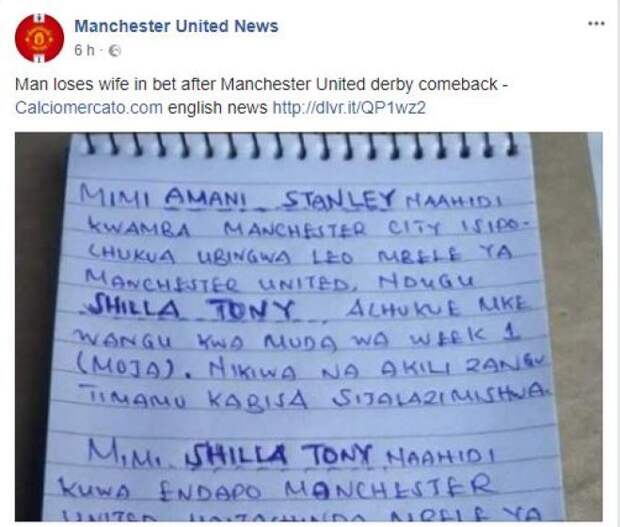 Manchester United News
6 h ·
Man loses wife in bet after Manchester United derby comeback -
Calciomercato.com english news http://dlvr.it/QP1wz2
MIMI AMANI STANLEY NAAHIDI
KWAMBA MANCHESTER CITY ISIPO-
CHUKUA UBINGWA LEO MBELE YA
MANCHESTER UNITED, NDUGU
SHILLA TONY ACHUKUE MKE
WANGU KWA MUDA WA WEEK 1
(MOJA). NIKIWA NA AKILI ZANGU
TIMAMU KABISA SIJALAZIMISHWA.
MIMI SHILLA TONY NAAHIDI
KUWA ENDAPO MANCHESTER
UNITED MBELE YA